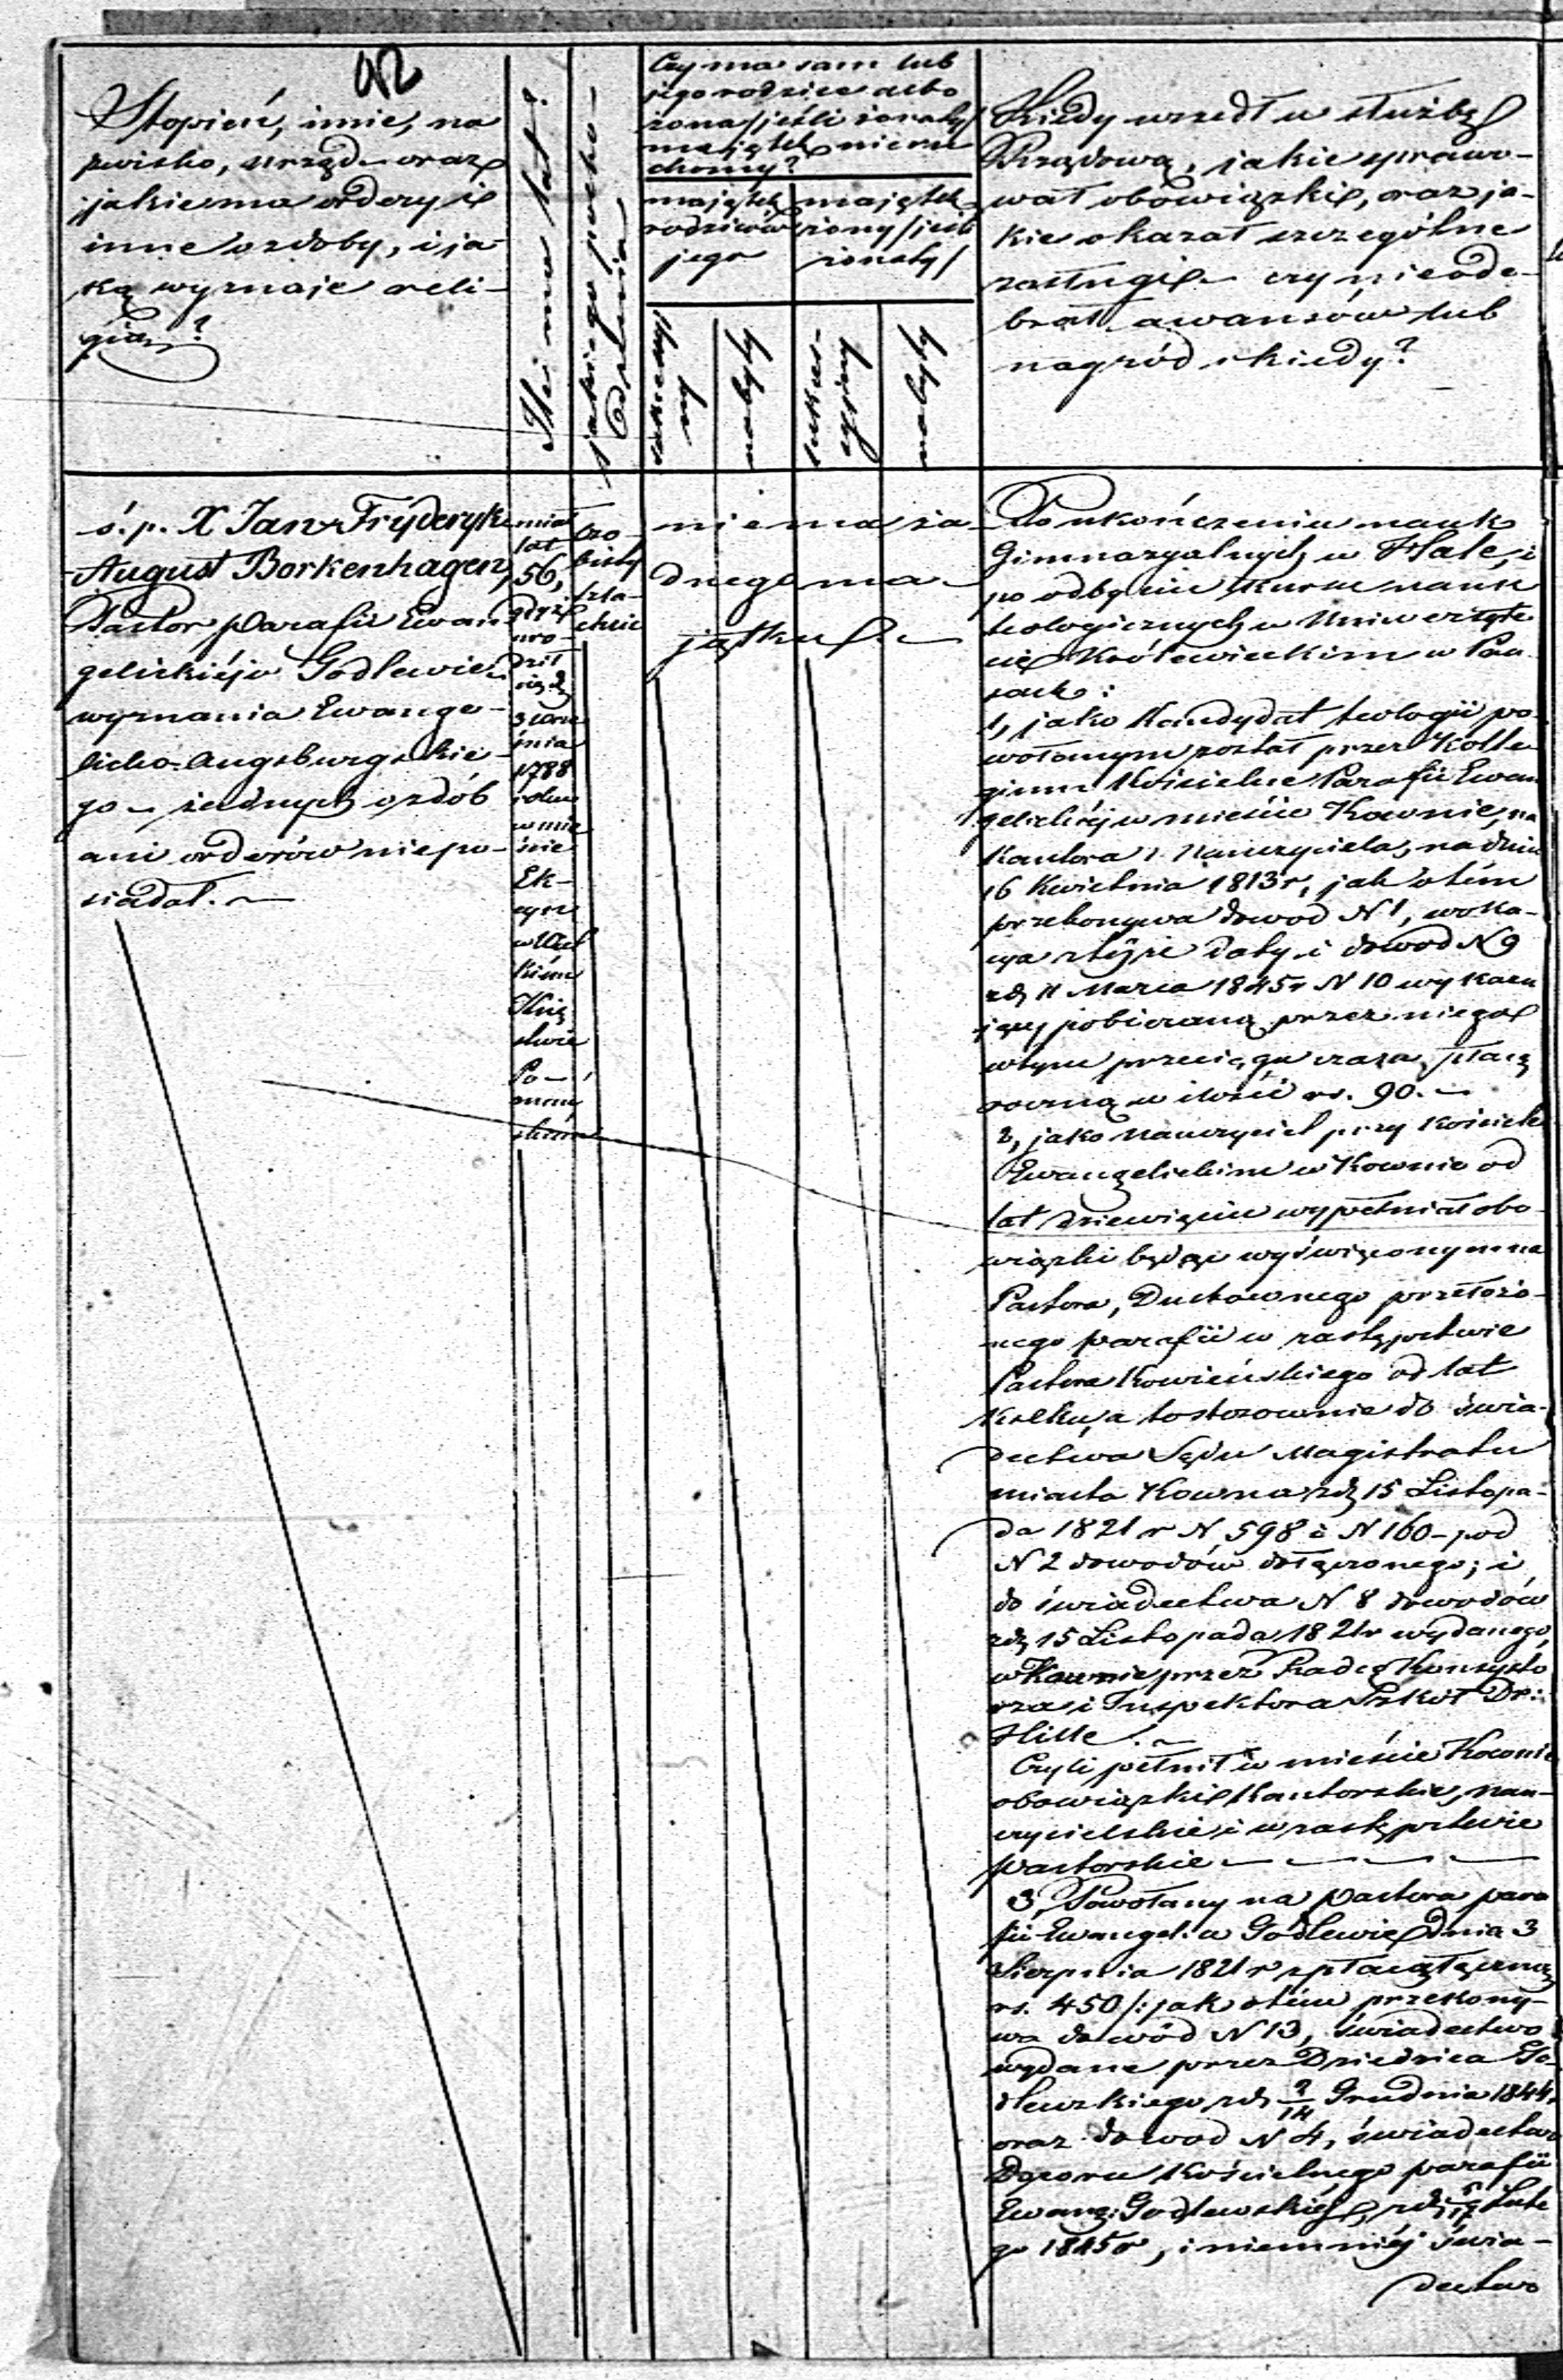 92
Stopień, imie, na
zwisko, urząd oraz
jakie ma ordery i
inne ozdoby, i ja-
ką wyznaje reli-
gią?
Ile ma lat?
z jakiego pocho-
dzenia
Czy ma sam lub
jego rodzice albo
żona /jeśli żonaty/
majątek nieru
chomy?
majątek
rodziców
jego
majątek
żony /jeśli
żonaty/
nabyty
nabyty
Kiedy wszedł w służbę
Rządową, jakie sprawo-
wał obowiązki, oraz ja-
kie okazał szczególne
zasługi czy nieode-
brał awansów lub
nagród i kiedy?
ś. p. X Jan Fryderyk
August Borkenhagen,
Pastor parafii Ewan
gelickiéj w Godlewie
wyznania Ewange-
licko-Augsburgskie-
go – żadnych ozdób
ani orderów niepo-
siadał. –
miał
lat
56,
gdyż
uro-
dził
się d.
3 Wrze
śnia
1788
roku
w mie
ście
Ek-
cyn
w Wiel
kiém
Księ
stwie
Po-
znań
skiém
oso-
bisty
szla-
chcic
niema ża-
dnego ma-
jątku. –
Po ukończeniu nauk
Gimnazyalnych w Hale, i
po odbyciu kursu nauk
teologicznych w Uniwersyte
cie Królewieckim w Pru
sach:
1, jako Kandydat teologii po-
wołanym został przez Kolle
gium Kościelne Parafii Ewan
gelickiéj w mieście Kownie, na
Kantora i Nauczyciela, na dniu
16 Kwietnia 1813 r, jak o tém
przekonywa dowod N 1, woka-
cya z téjże daty i dowod N 9
z d. 11 Marca 1845 r N 10 wykazu
jący pobieraną przez niego
w tym przeciągu czasu, płacą
roczną w ilości rs. 90. –
2, jako Nauczyciel przy kościele
Ewangelickim w Kownie od
lat dziewięciu wypełniał obo-
wiązki będąc wyświęconym na
Pastora, Duchownego przełożo-
nego parafii w zastępstwie
Pastora Kowieńskiego od lat
kilku, a to stosownie do świa-
dectwa Sądu Magistratu
miasta Kowna z d. 15 Listopa-
da 1821 r N 598 i N 160 – pod
N 2 dowodów dołączonego; i
do świadectwa N 8 dowodów
z d. 15 Listopada 1821 r wydanego,
w Kownie przez Radcę Konsysto
rza i Inspektora Szkół Dr:
Hille. –
Czyli pełnił w mieście Kownie
obowiązki Kantorskie, nau-
czycielskie i w zastępstwie
pastorskie – – – –
3, Powołany na pastora para
fii Ewangel. w Godlewie dnia 3
Sierpnia 1821 r z płacą łączną
rs. 450 /: jak o tém przekony-
wa dowód N 13, świadectwo
wydane przez Dziedzica Go-
dlewskiego z d. 2/14 Grudnia 1844 r
oraz dowod N 4, świadectwo
Dozoru Kościelnego parafii
Ewang: Godlewskiéj, z d. 5/17 Lute
go 1845 r, i niemniéj świa-
dectwo